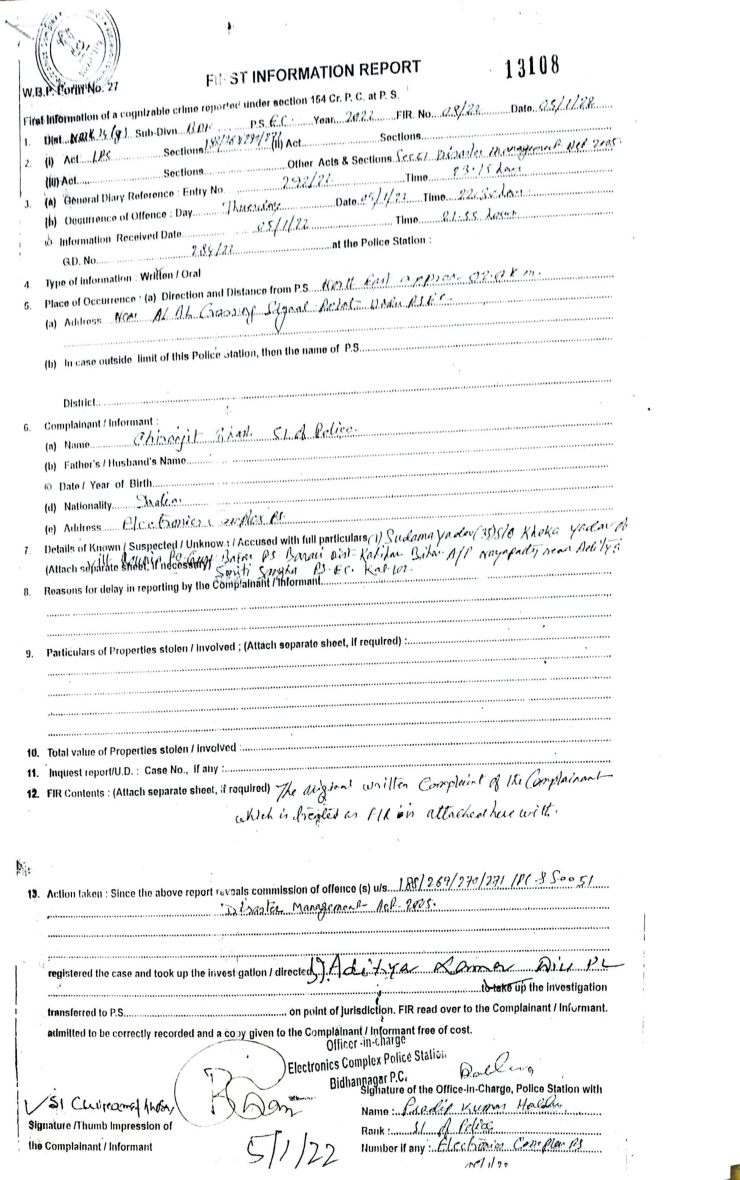 13108
W.B.P. Form No. 27
FIRST INFORMATION REPORT
First Information of a cognizable crime reported under section 154 Cr. P. C. at P. S.
1. Dist. Sub-Divn. P.S. EC. Year 2022 FIR. No. 08/22 Date 05/1/22
2. (i) Act IPS Sections (ii) Act Sections
(iii) Act Sections Other Acts & Sections Disaster Management Act 2005.
3. (a) General Diary Reference : Entry No. 292/22 Time 23-15
(b) Occurrence of Offence : Day Date 05/1/22 Time
(c) Information Received Date 05/1/22 Time 21-55
G.D. No. 284/22 at the Police Station :
4. Type of Information : Written / Oral
5. Place of Occurrence : (a) Direction and Distance from P.S. North East approx 02.0 km.
(a) Address Near Crossing Signal Point Under PS EC.
(b) In case outside limit of this Police Station, then the name of P.S.
District
6. Complainant / Informant :
(a) Name SI of Police.
(b) Father's / Husband's Name
(c) Date / Year of Birth
(d) Nationality Indian
(e) Address Electronics Complex PS.
7. Details of Known / Suspected / Unknown / Accused with full particulars (1) Sudama Yadav (35) S/O Khoka Yadav of
(Attach separate sheet, if necessary) PS Barari Dist- Katihar Bihar A/P Nayapatty near Aditya
PS- EC.
8. Reasons for delay in reporting by the Complainant / Informant
9. Particulars of Properties stolen / Involved ; (Attach separate sheet, if required) :
10. Total value of Properties stolen / Involved :
11. Inquest report/U.D. : Case No., If any :
12. FIR Contents : (Attach separate sheet, if required) The original written Complaint of the Complainant
which is treated as FIR is attached here with.
13. Action taken : Since the above report reveals commission of offence (s) u/s 188/269/270/271 IPC
Disaster Management Act- 2005.
registered the case and took up the investigation / directed Aditya
to take up the investigation
transferred to P.S. on point of jurisdiction. FIR read over to the Complainant / Informant.
admitted to be correctly recorded and a copy given to the Complainant / Informant free of cost.
Officer-in-charge
Electronics Complex Police Station
Bidhannagar P.C.
Signature of the Office-in-Charge, Police Station with
Name : Kumar
Rank : SI of Police
Number if any : Electronics Complex PS
SI
Signature /Thumb Impression of
the Complainant / Informant
5/1/22